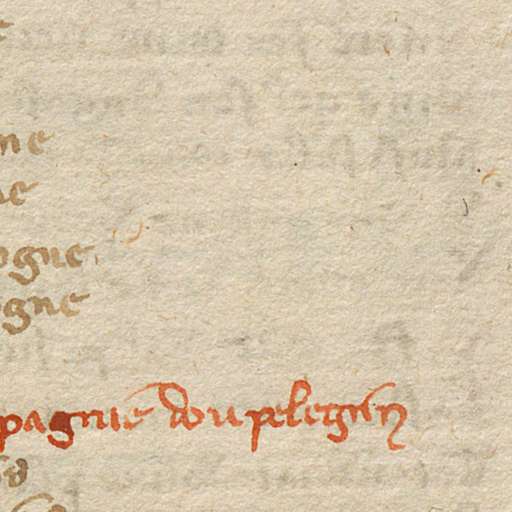 me
ne
ogne
ogne
pagnie dou pelegrin